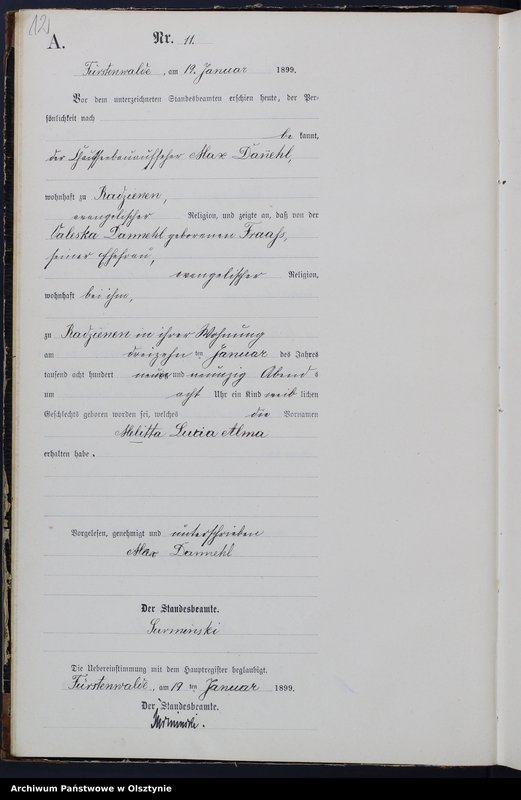 12
A.
Nr. 11.
Fürstenwalde, am 19. Januar 1899.
Vor dem unterzeichneten Standesbeamten erschien heute, der Per-
sönlichkeit nach
be kannt,
der Chausseebauaufseher Max Dannehl,
wohnhaft zu Radzienen,
evangelischer Religion, und zeigte an, daß von der
Valeska Dannehl geborenen Fraass,
seiner Ehefrau,
evangelischer Religion,
wohnhaft bei ihm,
zu Radzienen in ihrer Wohnung
am dreizehn ten Januar des Jahres
tausend acht hundert neun und neunzig Abend s
um acht Uhr ein Kind weib lichen
Geschlechts geboren worden sei, welches die Vornamen
Melitta Lucia Alma
erhalten habe.
Vorgelesen, genehmigt und unterschrieben
Max Dannehl
Der Standesbeamte.
Surminski
Die Uebereinstimmung mit dem Hauptregister beglaubigt.
Fürstenwalde, am 19 ten Januar 1899.
Der Standesbeamte.
Surminski.
Archiwum Państwowe w Olsztynie